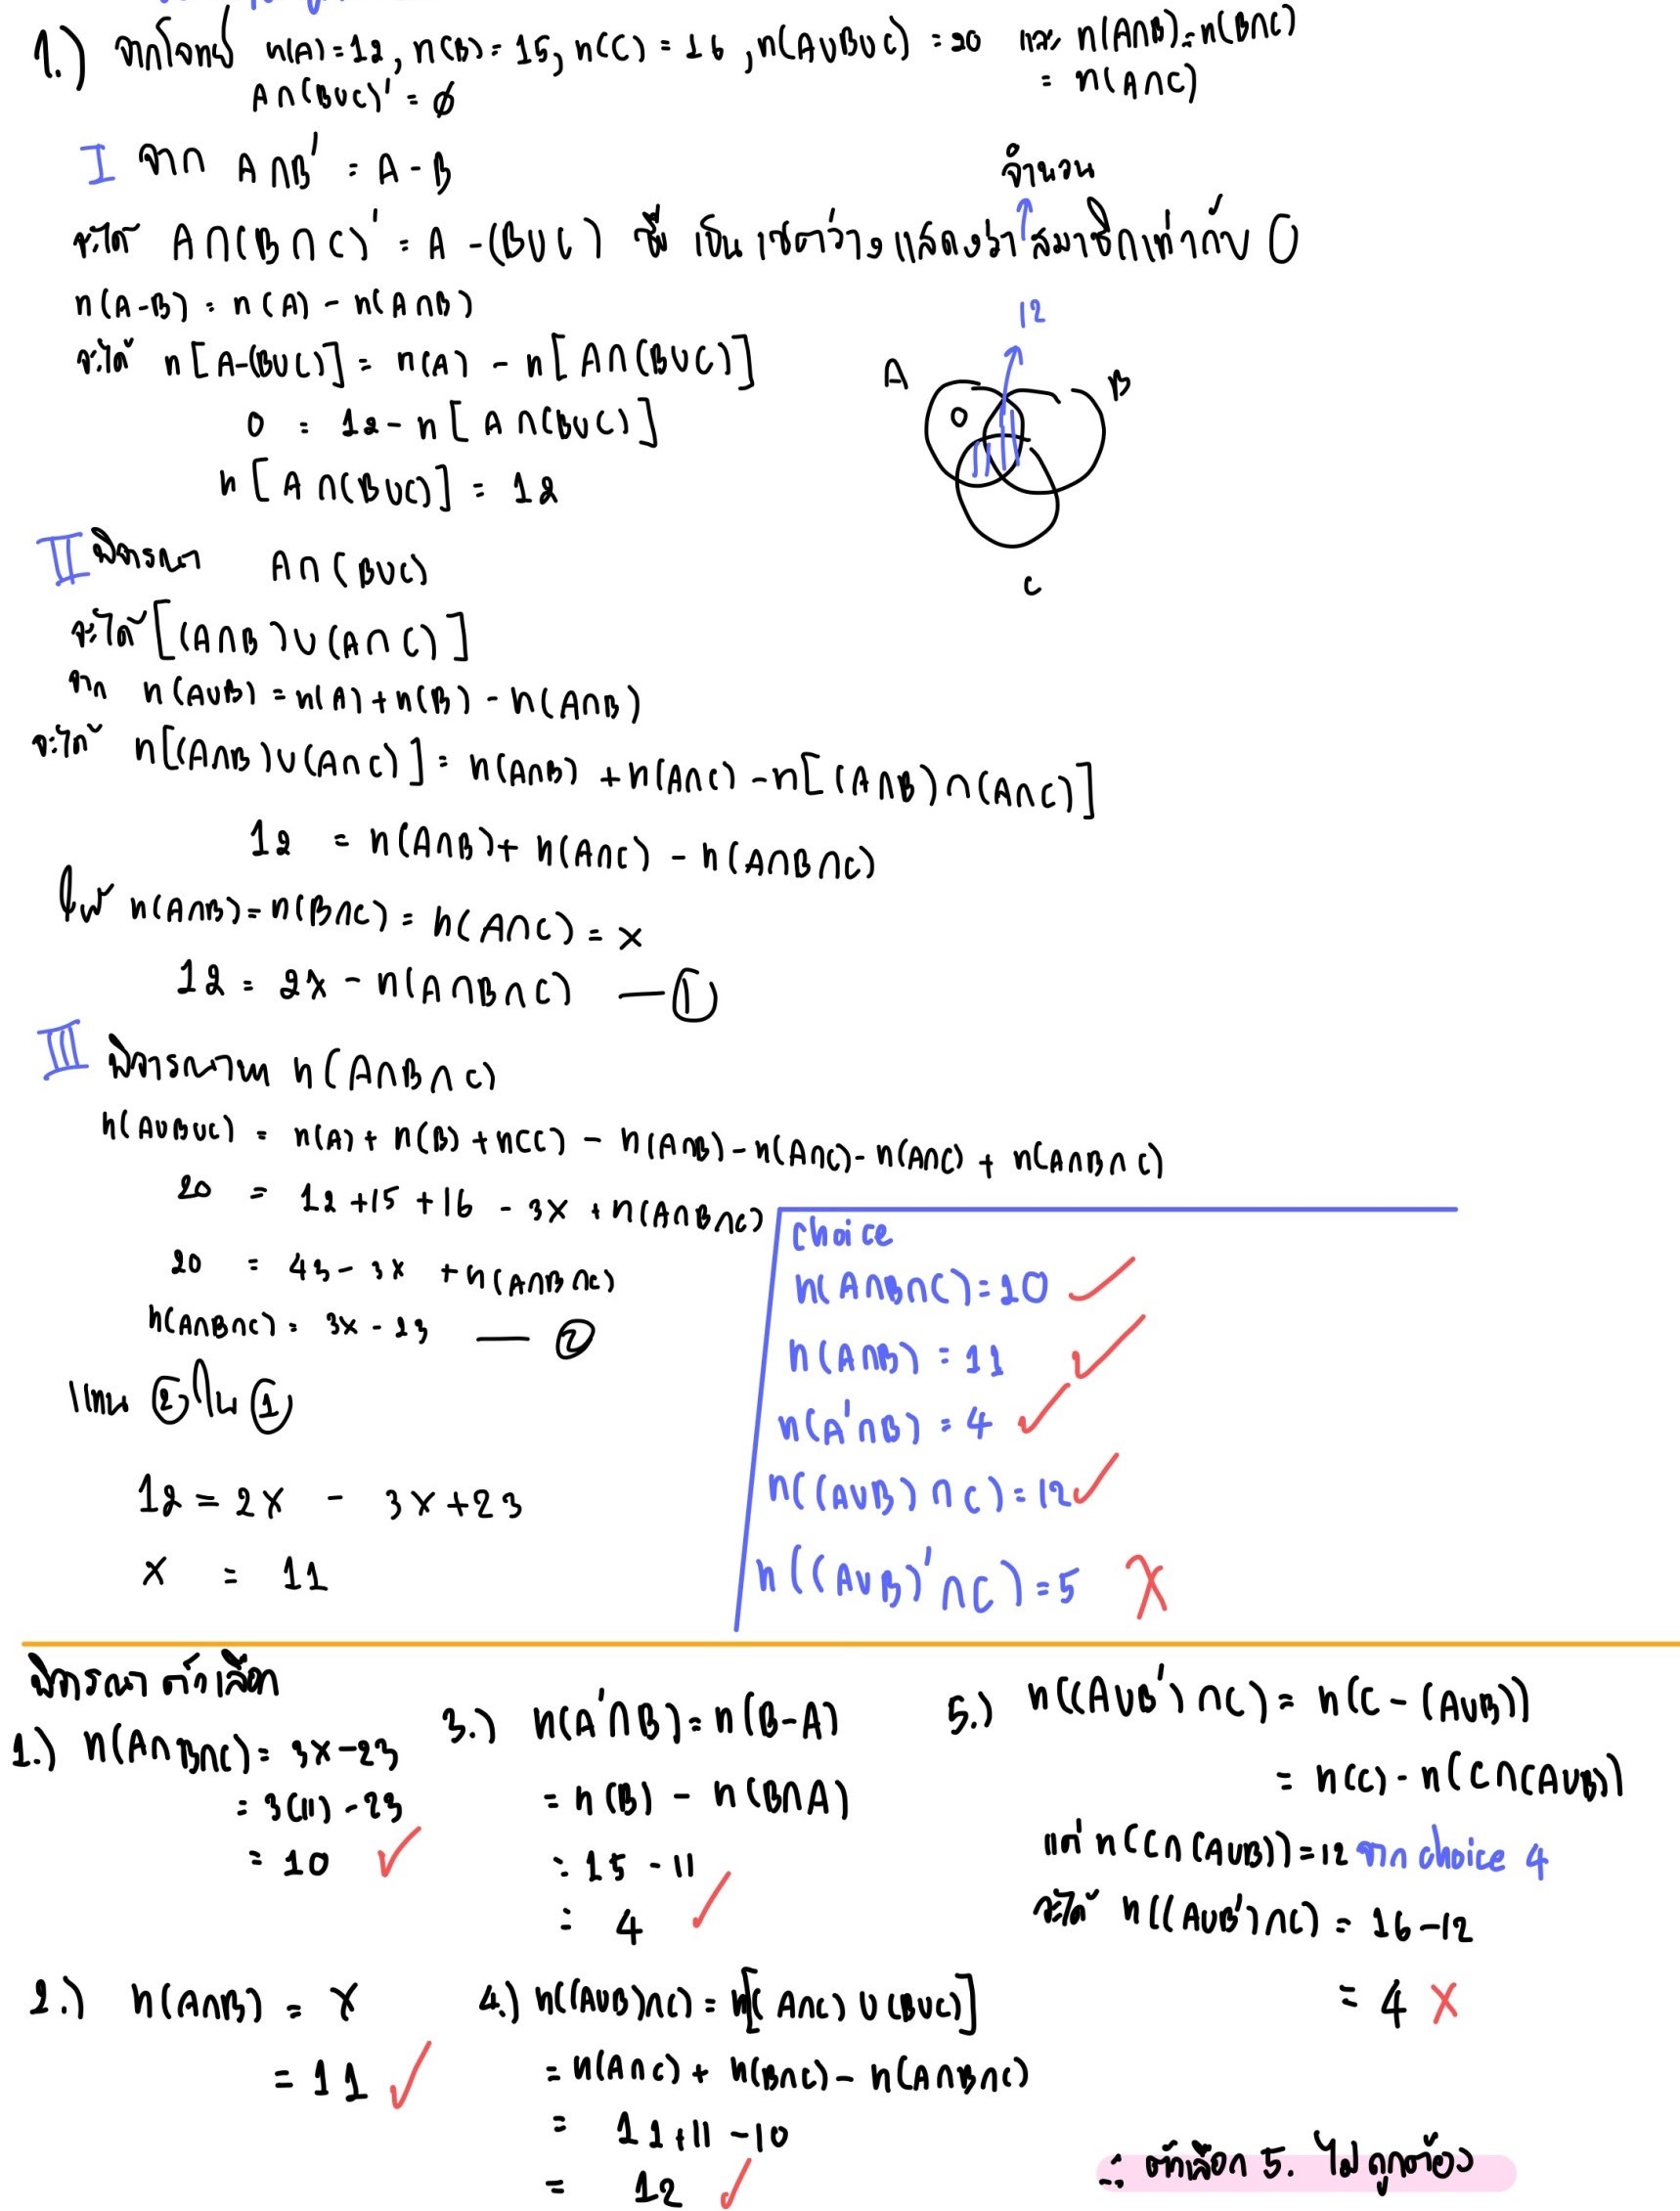 1.) จากโจทย์ n(A)=12, n(B)=15, n(C)=16, n(A∪B∪C)=20 และ n(A∩B)=n(B∩C)
= n(A∩C)
A∩(B∪C)' = ∅
I จาก A∩B' = A-B
จำนวน
จะได้ A∩(B∩C)' = A-(B∪C) ซึ่ง เป็น เซตว่าง แสดงว่า สมาชิกเท่ากับ 0
n(A-B) = n(A) - n(A∩B)
12
จะได้ n[A-(B∪C)] = n(A) - n[A∩(B∪C)]
A
B
0
0 = 12 - n[A∩(B∪C)]
n[A∩(B∪C)] = 12
C
II พิจารณา A∩(B∪C)
จะได้ [(A∩B)∪(A∩C)]
จาก n(A∪B) = n(A)+n(B) - n(A∩B)
จะได้ n[(A∩B)∪(A∩C)] = n(A∩B) + n(A∩C) - n[(A∩B)∩(A∩C)]
12 = n(A∩B) + n(A∩C) - n(A∩B∩C)
ให้ n(A∩B) = n(B∩C) = n(A∩C) = x
12 = 2x - n(A∩B∩C) — ①
III พิจารณาหา n(A∩B∩C)
n(A∪B∪C) = n(A) + n(B) + n(C) - n(A∩B) - n(A∩C) - n(A∩C) + n(A∩B∩C)
20 = 12+15+16 - 3x + n(A∩B∩C)
20 = 43 - 3x + n(A∩B∩C)
n(A∩B∩C) = 3x - 23 — ②
แทน ② ใน ①
12 = 2x - 3x+23
x = 11
choice
n(A∩B∩C) = 10 ✓
n(A∩B) = 11 ✓
n(A'∩B) = 4 ✓
n((A∪B)∩C) = 12 ✓
n((A∪B)'∩C) = 5 X
พิจารณา ตัวเลือก
1.) n(A∩B∩C) = 3x-23
= 3(11)-23
= 10 ✓
2.) n(A∩B) = x
= 11 ✓
3.) n(A'∩B) = n(B-A)
= n(B) - n(B∩A)
= 15 - 11
= 4 ✓
4.) n((A∪B)∩C) = n[(A∩C)∪(B∪C)]
= n(A∩C) + n(B∩C) - n(A∩B∩C)
= 11+11-10
= 12 ✓
5.) n((A∪B')∩C) = n(C-(A∪B))
= n(C) - n(C∩(A∪B))
แต่ n(C∩(A∪B)) = 12 จาก choice 4
จะได้ n((A∪B')∩C) = 16-12
= 4 X
∴ ตัวเลือก 5. ไม่ถูกต้อง